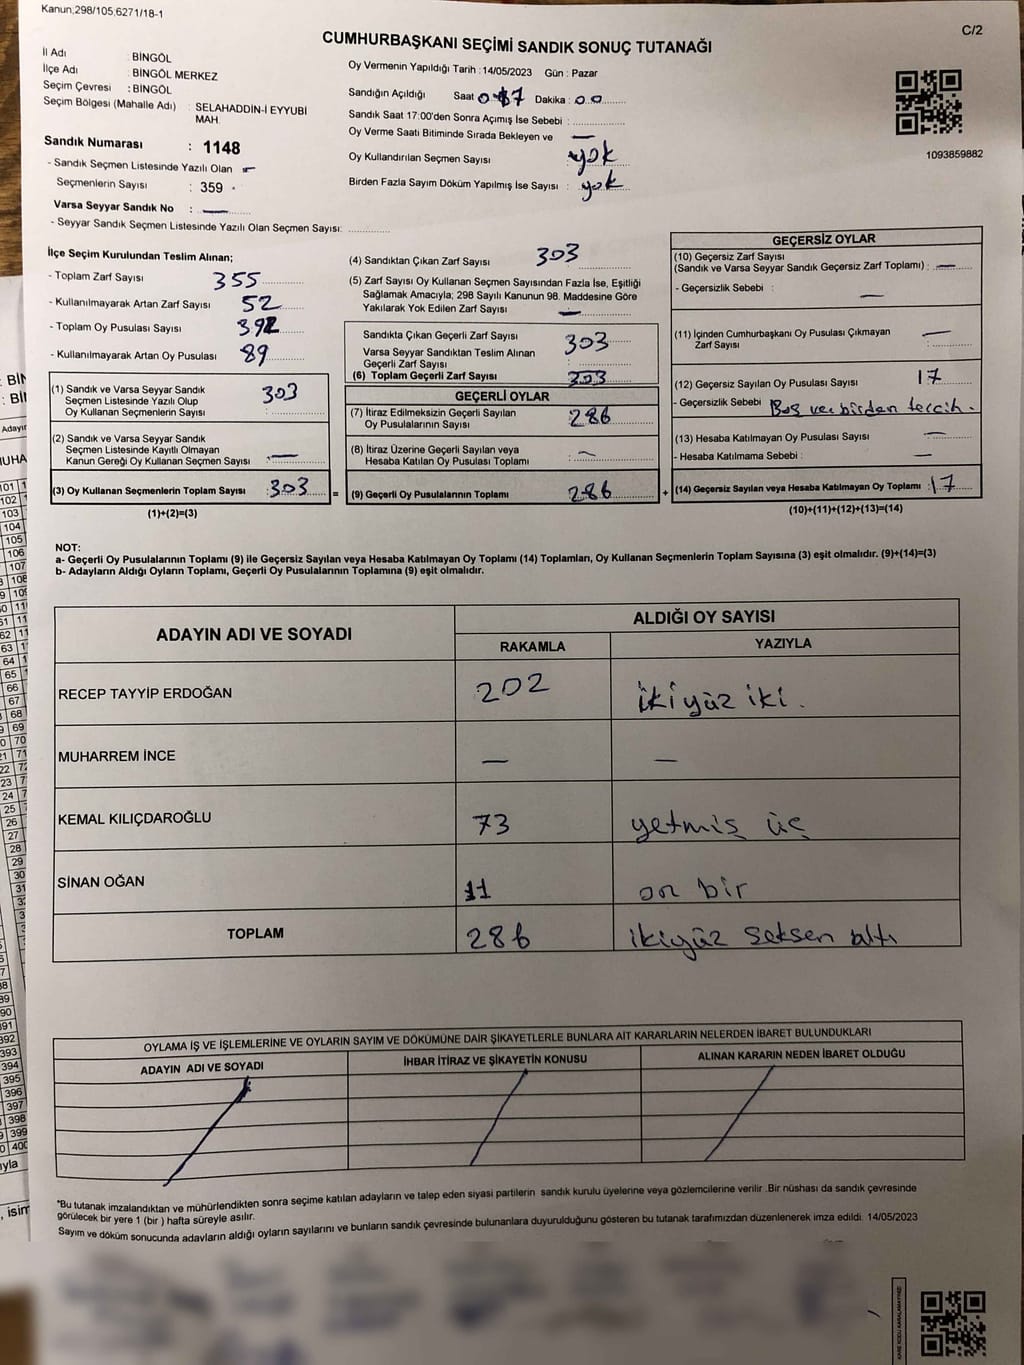 Kanun;298/105,6271/18-1
C/2
CUMHURBAŞKANI SEÇİMİ SANDIK SONUÇ TUTANAĞI
İl Adı : BİNGÖL
İlçe Adı : BİNGÖL MERKEZ
Seçim Çevresi : BİNGÖL
Seçim Bölgesi (Mahalle Adı) : SELAHADDİN-İ EYYUBİ
MAH.
Sandık Numarası : 1148
- Sandık Seçmen Listesinde Yazılı Olan
Seçmenlerin Sayısı : 359
Varsa Seyyar Sandık No : —
- Seyyar Sandık Seçmen Listesinde Yazılı Olan Seçmen Sayısı: ............
Oy Vermenin Yapıldığı Tarih : 14/05/2023 Gün : Pazar
Sandığın Açıldığı Saat Dakika : 00
Sandık Saat 17:00'den Sonra Açımış İse Sebebi : ............
Oy Verme Saati Bitiminde Sırada Bekleyen ve —
Oy Kullandırılan Seçmen Sayısı : yok
Birden Fazla Sayım Döküm Yapılmış İse Sayısı : yok
1093859882
İlçe Seçim Kurulundan Teslim Alınan;
- Toplam Zarf Sayısı 355
- Kullanılmayarak Artan Zarf Sayısı 52
- Toplam Oy Pusulası Sayısı 392
- Kullanılmayarak Artan Oy Pusulası 89
(1) Sandık ve Varsa Seyyar Sandık 303
Seçmen Listesinde Yazılı Olup
Oy Kullanan Seçmenlerin Sayısı
(2) Sandık ve Varsa Seyyar Sandık
Seçmen Listesinde Kayıtlı Olmayan
Kanun Gereği Oy Kullanan Seçmen Sayısı —
(3) Oy Kullanan Seçmenlerin Toplam Sayısı : 303 =
(1)+(2)=(3)
(4) Sandıktan Çıkan Zarf Sayısı 303
(5) Zarf Sayısı Oy Kullanan Seçmen Sayısından Fazla İse, Eşitliği
Sağlamak Amacıyla; 298 Sayılı Kanunun 98. Maddesine Göre
Yakılarak Yok Edilen Zarf Sayısı —
Sandıkta Çıkan Geçerli Zarf Sayısı 303
Varsa Seyyar Sandıktan Teslim Alınan
Geçerli Zarf Sayısı
(6) Toplam Geçerli Zarf Sayısı 303
GEÇERLİ OYLAR
(7) İtiraz Edilmeksizin Geçerli Sayılan 286
Oy Pusulalarının Sayısı
(8) İtiraz Üzerine Geçerli Sayılan veya —
Hesaba Katılan Oy Pusulası Toplamı
(9) Geçerli Oy Pusulalarının Toplamı 286 +
GEÇERSİZ OYLAR
(10) Geçersiz Zarf Sayısı
(Sandık ve Varsa Seyyar Sandık Geçersiz Zarf Toplamı) : —
- Geçersizlik Sebebi : —
(11) İçinden Cumhurbaşkanı Oy Pusulası Çıkmayan —
Zarf Sayısı
(12) Geçersiz Sayılan Oy Pusulası Sayısı 17
- Geçersizlik Sebebi Boş ve birden tercih.
(13) Hesaba Katılmayan Oy Pusulası Sayısı —
- Hesaba Katılmama Sebebi : —
(14) Geçersiz Sayılan veya Hesaba Katılmayan Oy Toplamı : 17
(10)+(11)+(12)+(13)=(14)
NOT:
a- Geçerli Oy Pusulalarının Toplamı (9) ile Geçersiz Sayılan veya Hesaba Katılmayan Oy Toplamı (14) Toplamları, Oy Kullanan Seçmenlerin Toplam Sayısına (3) eşit olmalıdır. (9)+(14)=(3)
b- Adayların Aldığı Oyların Toplamı, Geçerli Oy Pusulalarının Toplamına (9) eşit olmalıdır.
ADAYIN ADI VE SOYADI ALDIĞI OY SAYISI
RAKAMLA YAZIYLA
RECEP TAYYİP ERDOĞAN 202 ikiyüz iki.
MUHARREM İNCE — —
KEMAL KILIÇDAROĞLU 73 yetmiş üç
SİNAN OĞAN 11 on bir
TOPLAM 286 ikiyüz seksen altı
OYLAMA İŞ VE İŞLEMLERİNE VE OYLARIN SAYIM VE DÖKÜMÜNE DAİR ŞİKAYETLERLE BUNLARA AİT KARARLARIN NELERDEN İBARET BULUNDUKLARI
ADAYIN ADI VE SOYADI İHBAR İTİRAZ VE ŞİKAYETİN KONUSU ALINAN KARARIN NEDEN İBARET OLDUĞU
*Bu tutanak imzalandıktan ve mühürlendikten sonra seçime katılan adayların ve talep eden siyasi partilerin sandık kurulu üyelerine veya gözlemcilerine verilir .Bir nüshası da sandık çevresinde
görülecek bir yere 1 (bir ) hafta süreyle asılır.
Sayım ve döküm sonucunda adayların aldığı oyların sayılarını ve bunların sandık çevresinde bulunanlara duyurulduğunu gösteren bu tutanak tarafımızdan düzenlenerek imza edildi. 14/05/2023